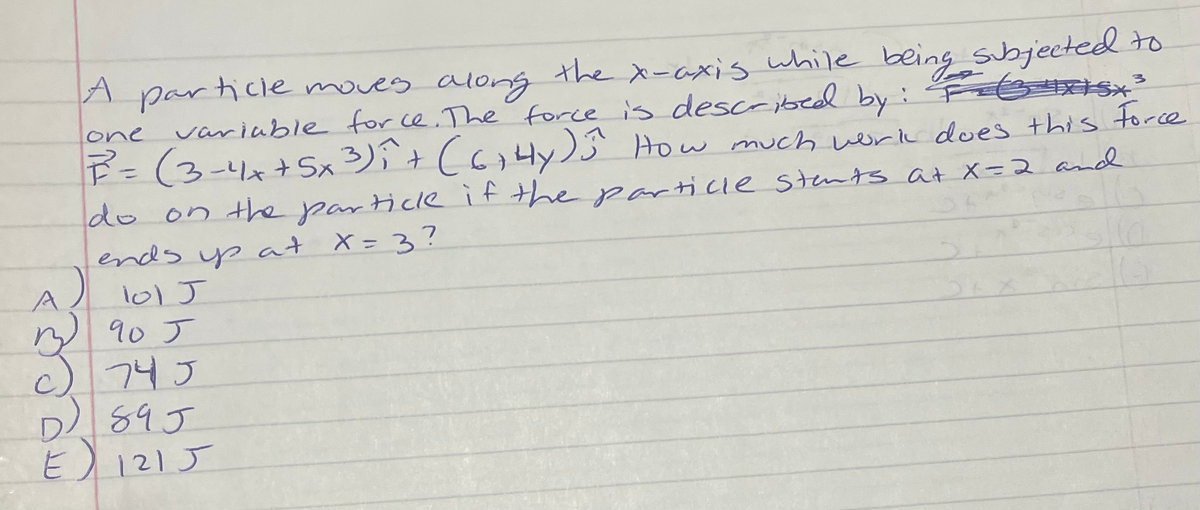 A particle moves along the x-axis while being subjected to
one variable force. The force is described by:
F⃗ = (3-4x+5x³)î + (6+4y)ĵ How much work does this force
do on the particle if the particle starts at x=2 and
ends up at x=3?
A) 101 J
B) 90 J
C) 74 J
D) 89 J
E) 121 J